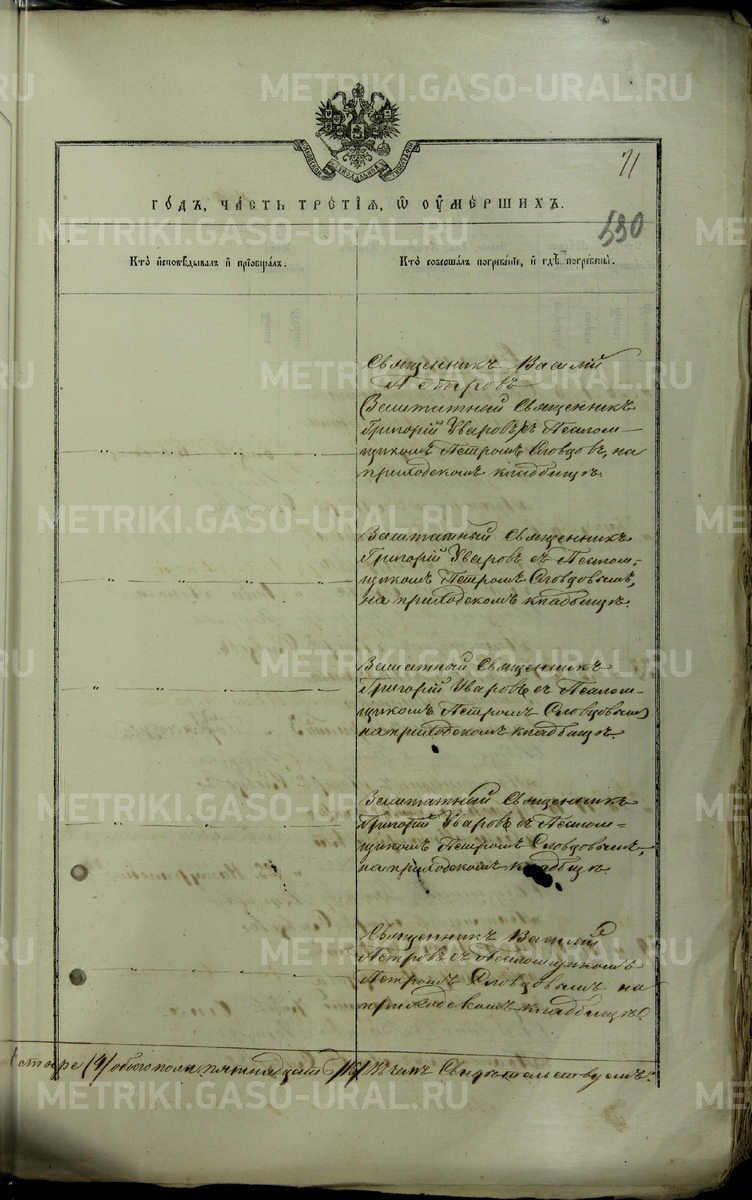 71
ГО́ДЪ, ЧА́СТЬ ТРЕ́ТІѦ, Ѡ ОУ҆МЕ́РШИХЪ.
530
Кто̀ и҆сповѣ́дывалъ и҆ прїѡбща́лъ.
Кто̀ соверша́лъ погребе́нїе, и҆ гдѣ̀ погребены̀.
Священникъ Василій
Петровъ
(Заштатный Священникъ
Григорій Уваровъ) съ Псалом-
щикомъ Петромъ Словцов ъ, на
приходскомъ кладбищѣ.
Заштатный Священникъ
Григорій Уваровъ съ Псалом-
щикомъ Петромъ Словцовымъ,
на приходскомъ кладбищѣ.
Зашатный Священникъ
Григорій Уваровъ съ Псалом-
щикомъ Петромъ Словцовым)
на приходскомъ кладбищѣ.
Заштатный Священникъ
Григорій Уваровъ съ Псалом-
щикомъ Петромъ Словцовымъ,
на приходскомъ кладбищѣ
Священникъ Василій
Петровъ съ Псаломщикомъ
Петромъ Словцовымъ на
приходскомъ кладбищѣ.
обоего пола пятнадцать /15/ Въ чемъ Свидѣтельствуемъ:
METRIKI.GASO-URAL.RU